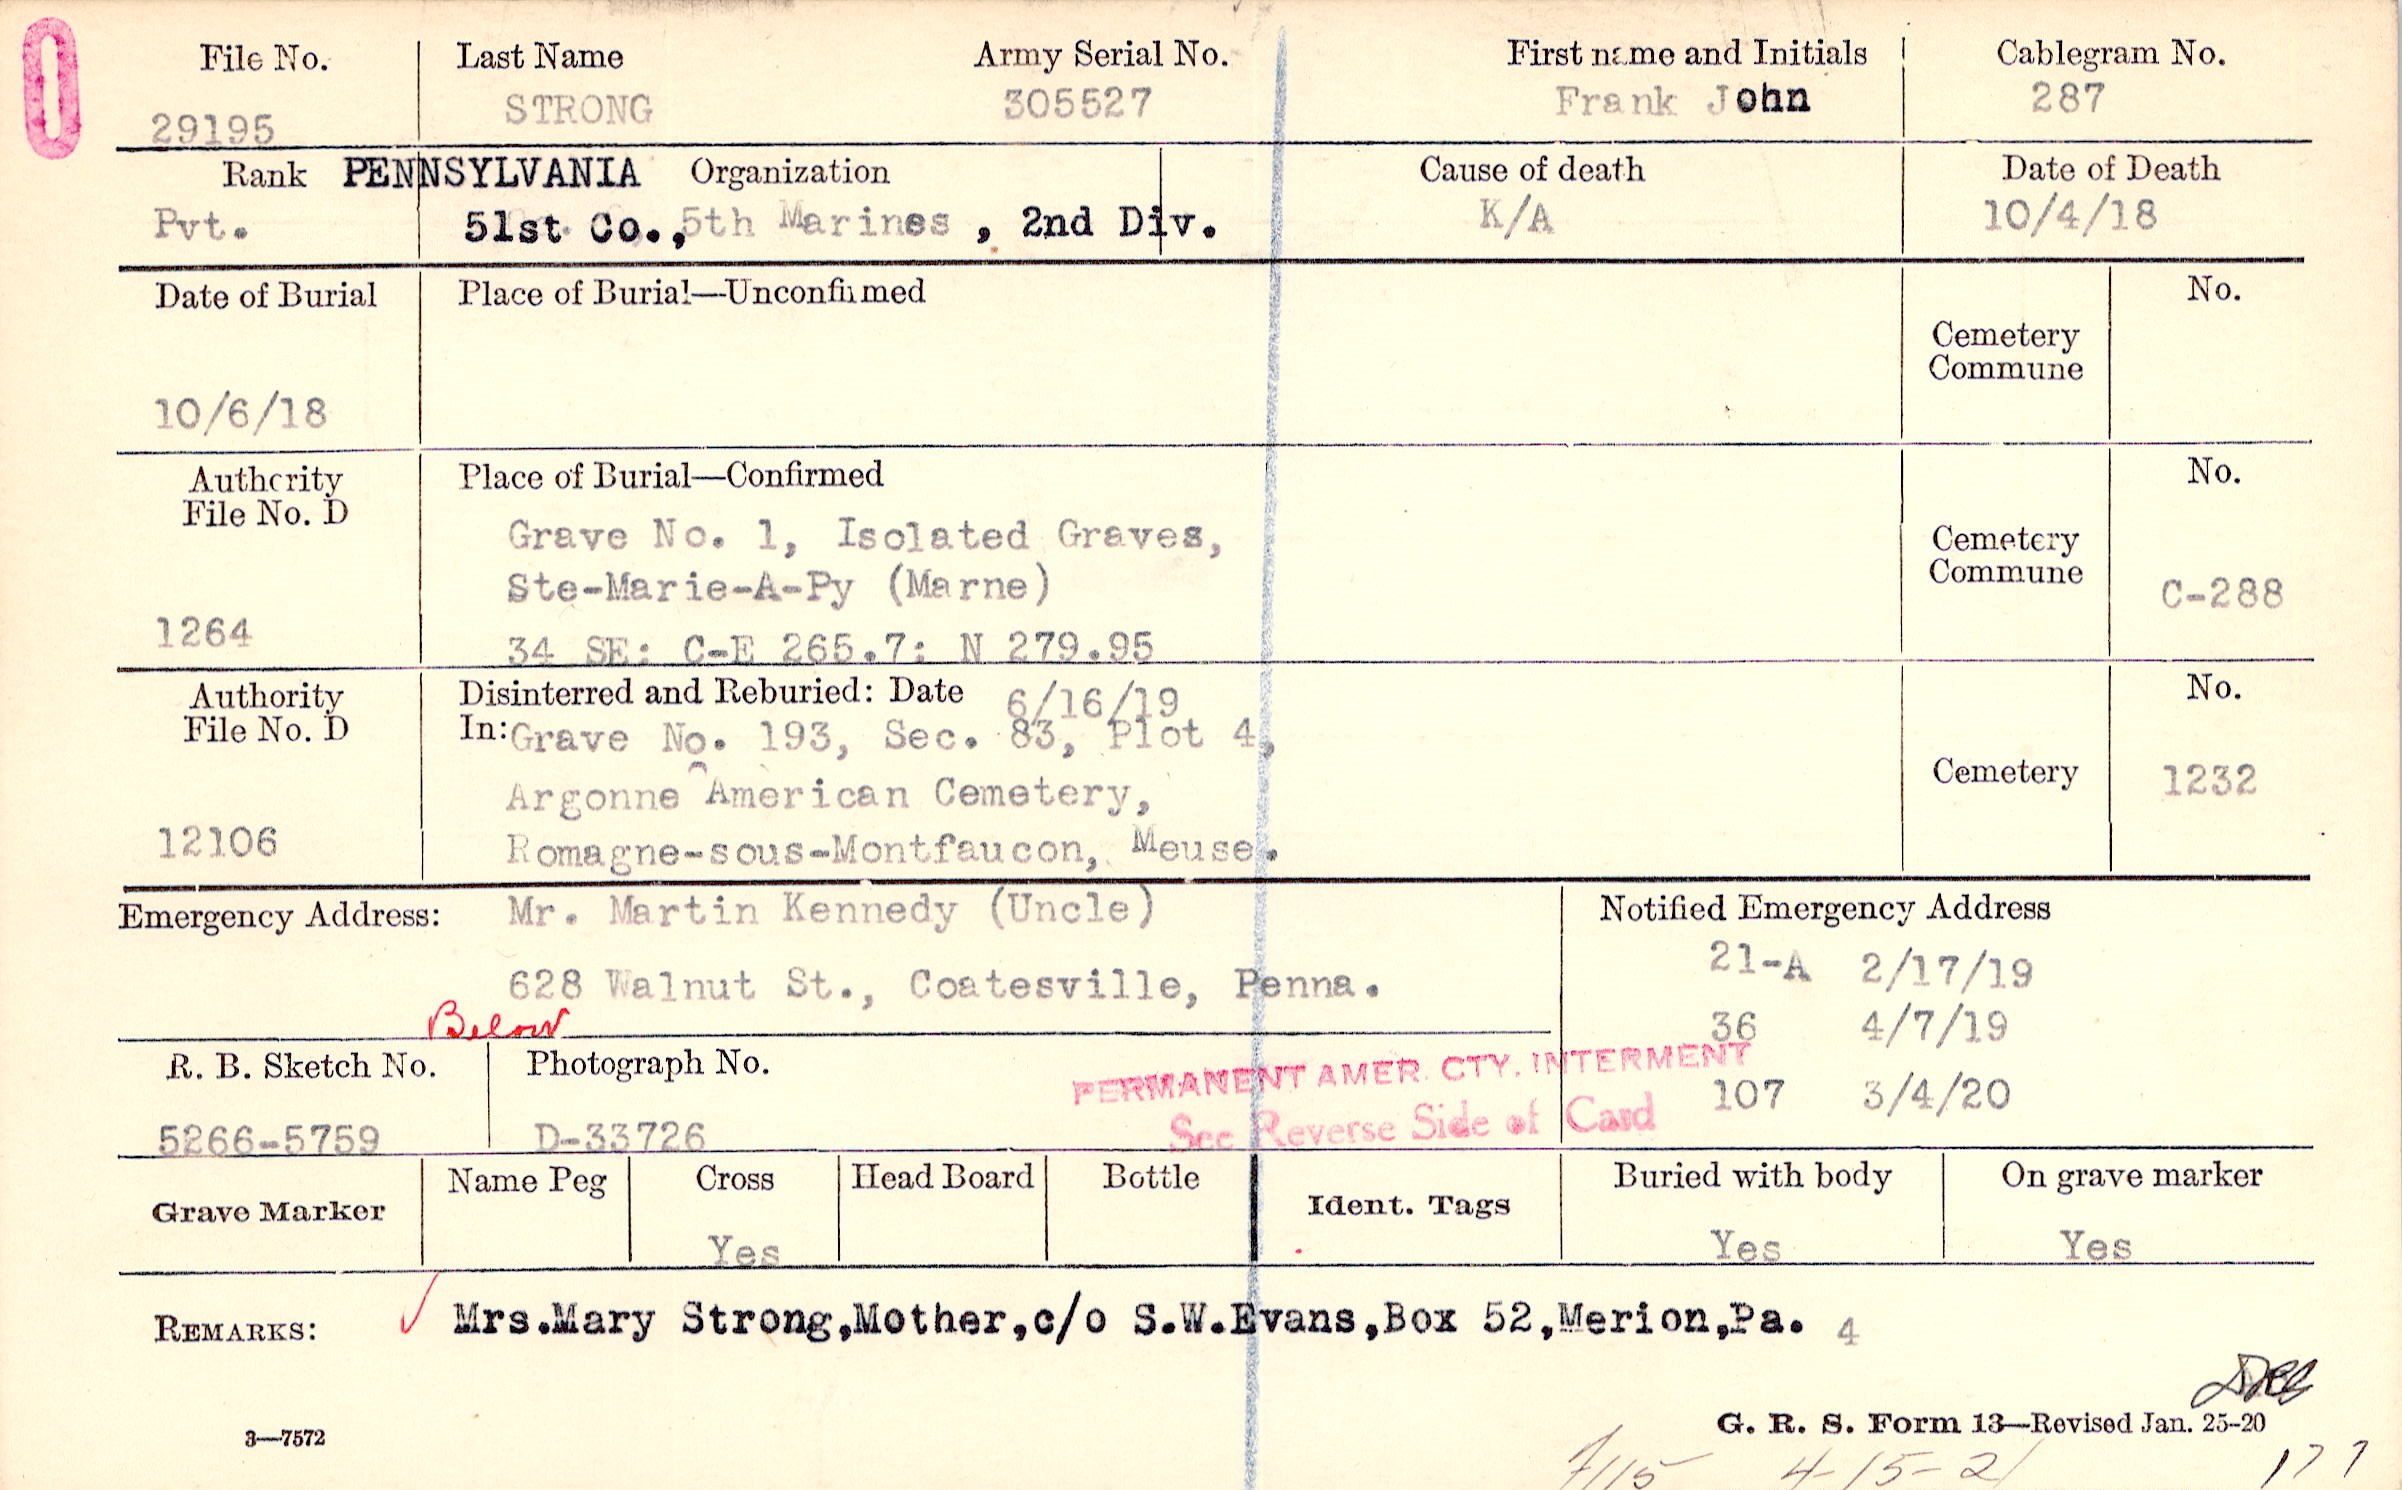 File No. Last Name Army Serial No. First name and Initials Cablegram No.
29195 STRONG 305527 Frank John 287
Rank PENNSYLVANIA Organization Cause of death Date of Death
Pvt. 51st Co., 5th Marines , 2nd Div. K/A 10/4/18
Date of Burial Place of Burial—Unconfirmed No.
Cemetery
Commune
10/6/18
Authority Place of Burial—Confirmed No.
File No. D
Grave No. 1, Isolated Graves, Cemetery
Ste-Marie-A-Py (Marne) Commune C-288
1264 34 SE: C-E 265.7: N 279.95
Authority Disinterred and Reburied: Date 6/16/19 No.
File No. D In: Grave No. 193, Sec. 83, Plot 4,
Argonne American Cemetery, Cemetery 1232
12106 Romagne-sous-Montfaucon, Meuse.
Emergency Address: Mr. Martin Kennedy (Uncle) Notified Emergency Address
21-A 2/17/19
628 Walnut St., Coatesville, Penna.
Below 36 4/7/19
R. B. Sketch No. Photograph No. PERMANENT AMER. CTY. INTERMENT
107 3/4/20
5266-5759 D-33726 See Reverse Side of Card
Grave Marker Name Peg Cross Head Board Bottle Ident. Tags Buried with body On grave marker
Yes Yes Yes
REMARKS: Mrs.Mary Strong,Mother,c/o S.W.Evans,Box 52,Merion,Pa. 4
3—7572 G. R. S. Form 13—Revised Jan. 25-20
4-15-21 177